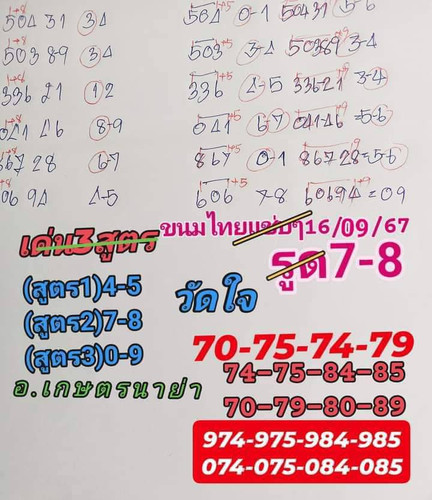 +8 504 31 34 +5 504 0-1 50431 5-6
+8 50389 34 +5 503 3-4 50389 3-4
+8 336 21 12 +5 336 4-5 33621 +9 3-4
041 46 8-9 +5 041 67 04146 +9 =5-6
+8 867 28 6-7 +5 867 0-1 86728 +9 =5-6
60694 4-5 606 +5 7-8 60694 +9 =09
เด่น3สูตร
ขนมไทยแซ่บๆ16/09/67
รูด7-8
(สูตร1)4-5
(สูตร2)7-8
(สูตร3)0-9
วัดใจ
อ.เกษตรนาย่า
70-75-74-79
74-75-84-85
70-79-80-89
974-975-984-985
074-075-084-085